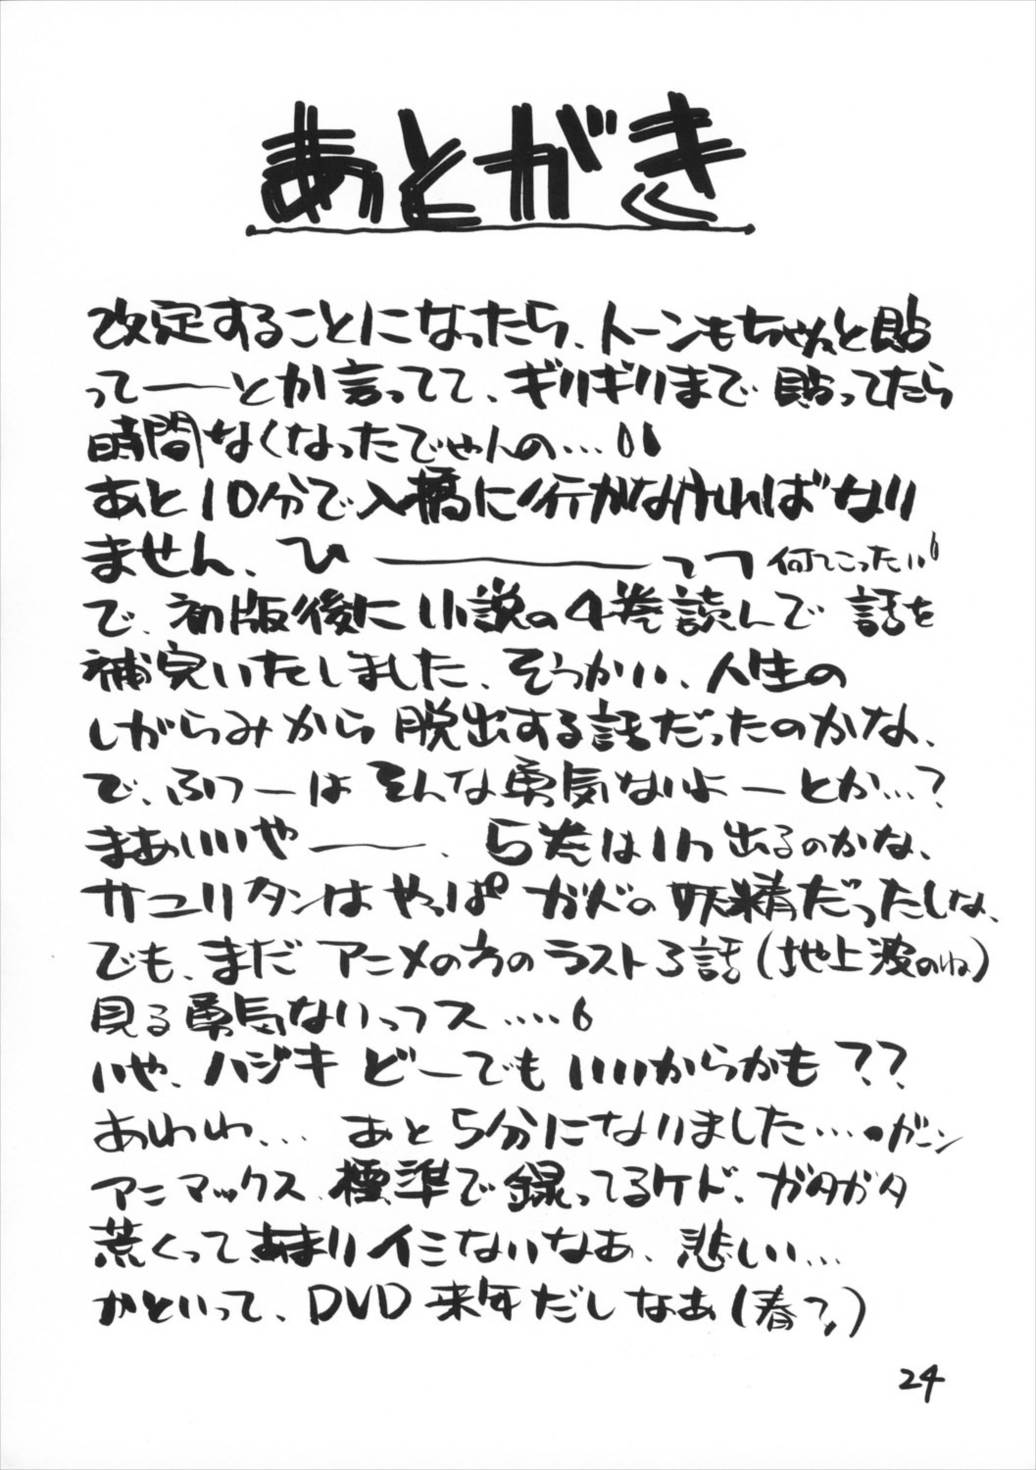 あとがき
改定することになったら、トーンもちゃんと貼
って――とか言ってて、ギリギリまで貼ってたら
時間なくなったでやんの…
あと10分で入稿に行かなければなり
ません、ひ――――てつ 何てこったい
で、初版後に小説の4巻読んで話を
補完いたしました、そうかい、人生の
しがらみから脱出する話だったのかな、
で、ふつーはそんな勇気ないよーとか…?
まあいいや――、5巻はいつ出るのかな、
サユリタンはやっぱ ガドの妖精だったしな、
でも、まだアニメの方のラスト3話(地上波のね)
見る勇気ないっフス‥‥
いや、ハジキどーでもいいからかも??
あわわ… あと5分になりました…ガーン
アニマックス、標準で録ってるケド、ガタガタ
荒くってあまりイミないなあ、悲しい…
かといって、DVD来年だしなあ(春?)
24